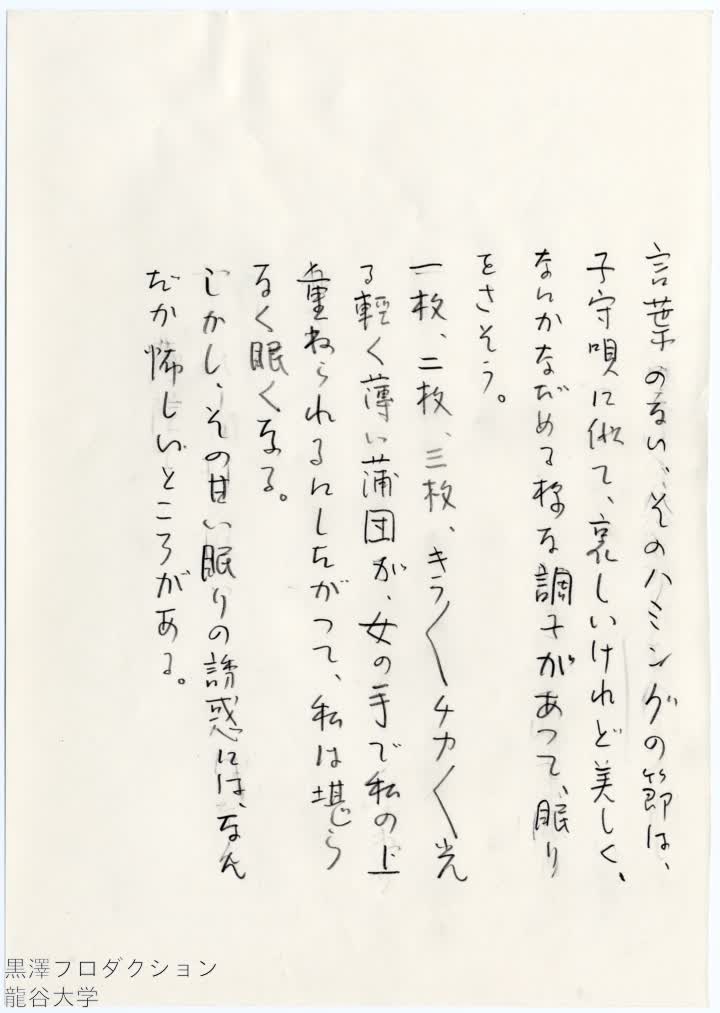 言葉のない、そのハミングの節は、
子守唄に似て、哀しいけれど美しく、
なにかなだめる様な調子があって、眠り
をさそう。
一枚、二枚、三枚、キラ〱チカ〱光
る軽く薄い蒲団が、女の手で私の上
重ねられるにしたがつて、私は堪じら
るく眠くなる。
しかし、その甘い眠りの誘惑には、なん
だか怖しいところがある。
黒澤プロダクション
龍谷大学